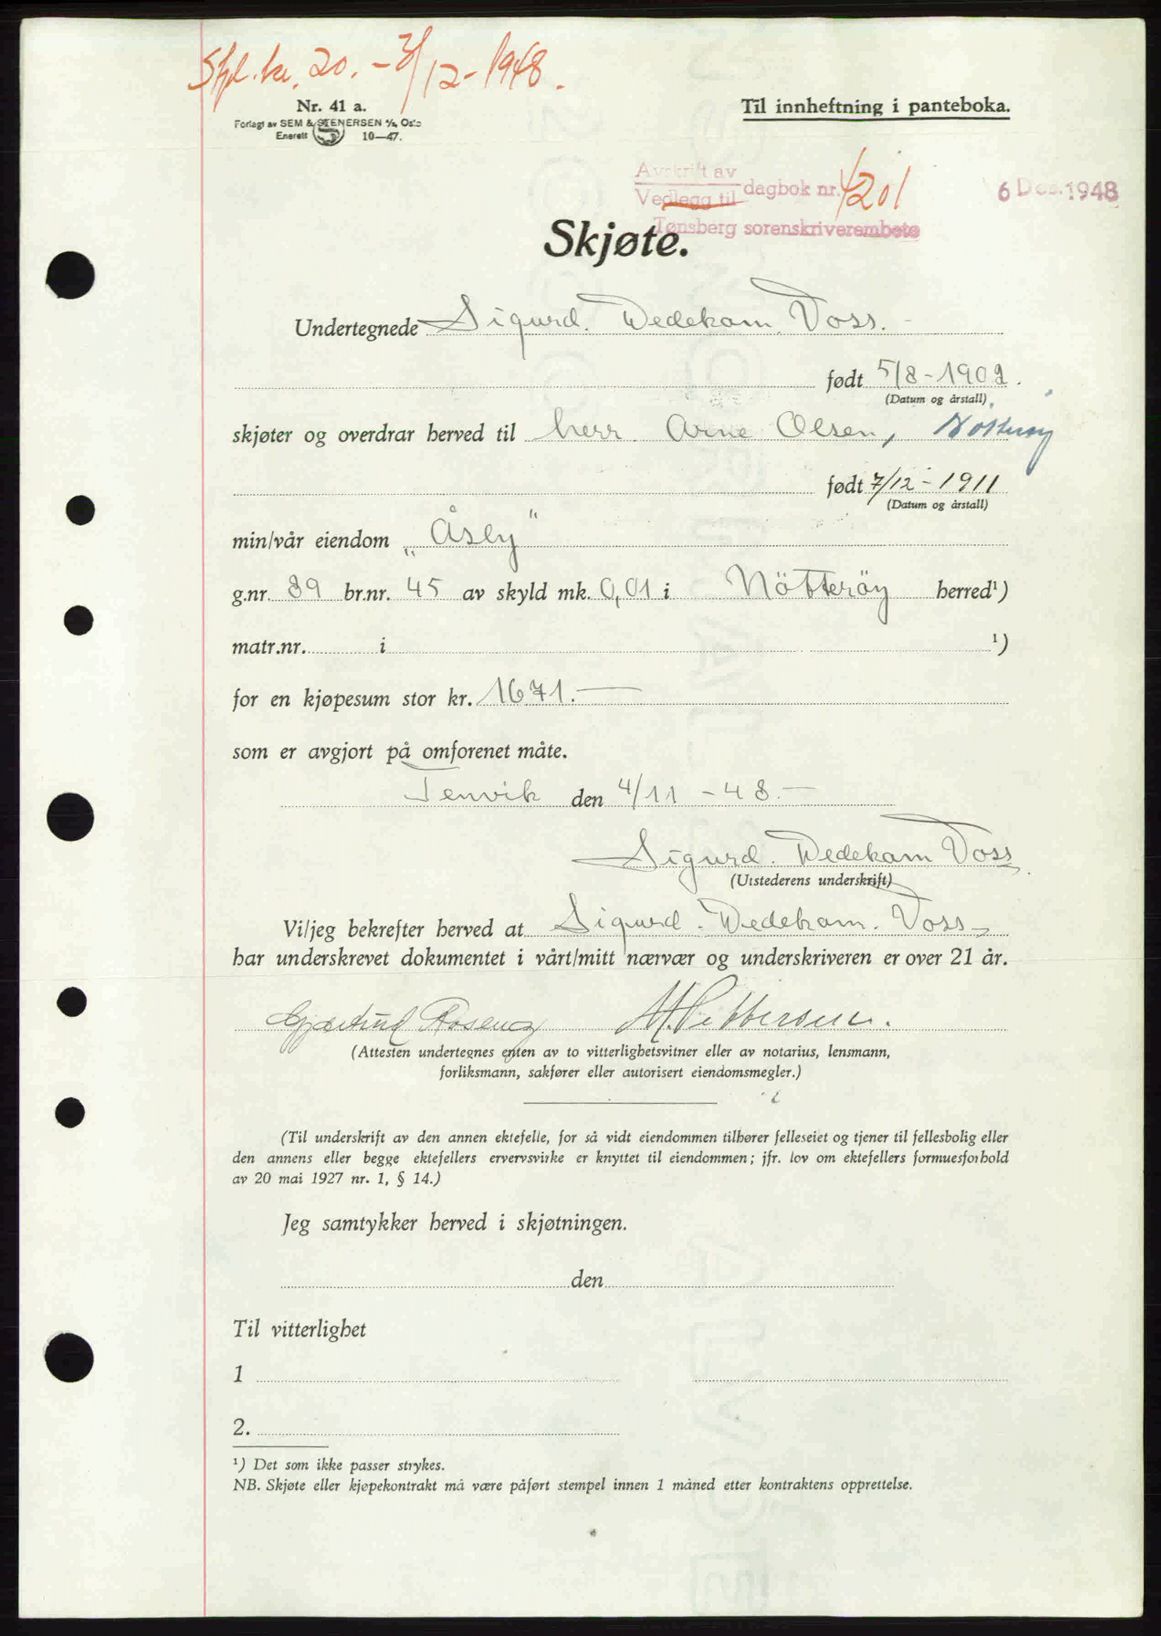 Stpl. kr. 20. - 3/12 - 1948.
Nr. 41 a.
Forlagt av SEM & STENERSEN A/S, Oslo
Enerett 10—47.
Til innheftning i panteboka.
Avskrift av
Vedlegg til dagbok nr. 4201 6 Des. 1948
Tønsberg sorenskriverembete
Skjøte.
Undertegnede Sigurd. Wedekam. Voss. -
født 5/8 - 1902.
(Datum og årstall)
skjøter og overdrar herved til herr Arne Olsen, Nötteröy
født 7/12 - 1911
(Datum og årstall)
min/vår eiendom „Åsly"
g.nr. 89 br.nr. 45 av skyld mk. 0,01 i Nötteröy herred¹)
matr.nr. i ¹)
for en kjøpesum stor kr. 1671.—
som er avgjort på omforenet måte.
Tenvik den 4/11 - 48.—
Sigurd. Wedekam Voss
(Utstederens underskrift)
Vi/jeg bekrefter herved at Sigurd. Wedekam. Voss
har underskrevet dokumentet i vårt/mitt nærvær og underskriveren er over 21 år.
Gjærtrud M. Pettersen.
(Attesten undertegnes enten av to vitterlighetsvitner eller av notarius, lensmann,
forliksmann, sakfører eller autorisert eiendomsmegler.)
(Til underskrift av den annen ektefelle, for så vidt eiendommen tilhører felleseiet og tjener til fellesbolig eller
den annens eller begge ektefellers ervervsvirke er knyttet til eiendommen; jfr. lov om ektefellers formuesforhold
av 20 mai 1927 nr. 1, § 14.)
Jeg samtykker herved i skjøtningen.
den
Til vitterlighet
1
2.
¹) Det som ikke passer strykes.
NB. Skjøte eller kjøpekontrakt må være påført stempel innen 1 måned etter kontraktens opprettelse.